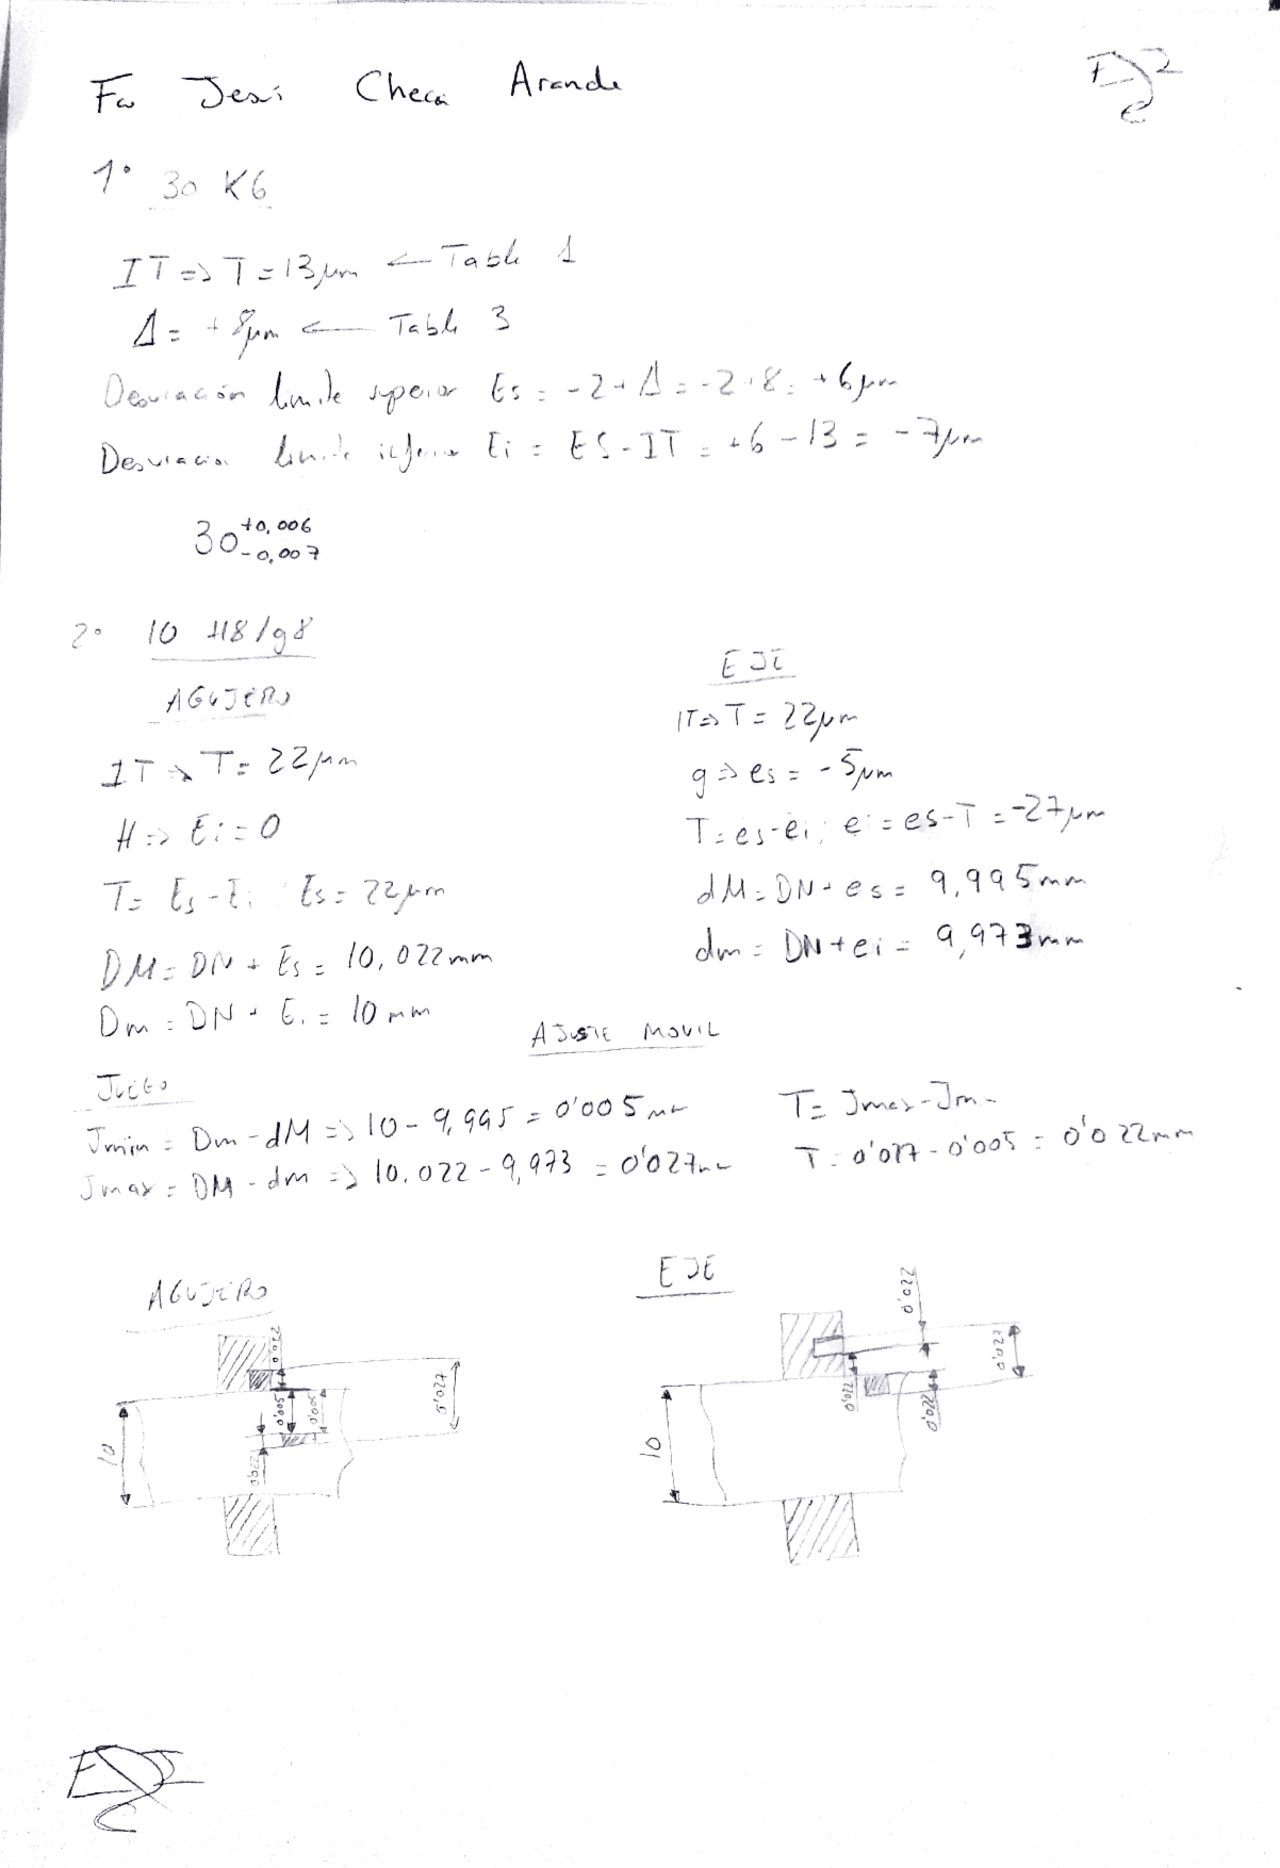 Fco Jesús Checa Aranda
1º 30 K6
IT => T = 13 µm ← Tabla 1
Δ = +8 µm ← Tabla 3
Desviación limite superior Es = -2 + Δ = -2+8 = +6 µm
Desviación limite inferior Ei = ES - IT = +6 - 13 = -7 µm
30 +0,006 -0,007
2º 10 H8/g8
AGUJERO
IT => T = 22 µm
H => Ei = 0
T = Es - Ei Es = 22 µm
DM = DN + Es = 10,022 mm
Dm = DN + Ei = 10 mm
EJE
IT => T = 22 µm
g => es = -5 µm
T = es - ei; ei = es - T = -27 µm
dM = DN + es = 9,995 mm
dm = DN + ei = 9,973 mm
AJUSTE MOVIL
JUEGO
Jmin = Dm - dM => 10 - 9,995 = 0'005 mm
Jmax = DM - dm => 10.022 - 9,973 = 0'027 mm
T = Jmax - Jmin
T = 0'027 - 0'005 = 0'022 mm
AGUJERO
10
0'022
0'005
0'005
0'022
0'027
EJE
10
0'022
0'022
0'022
0'027